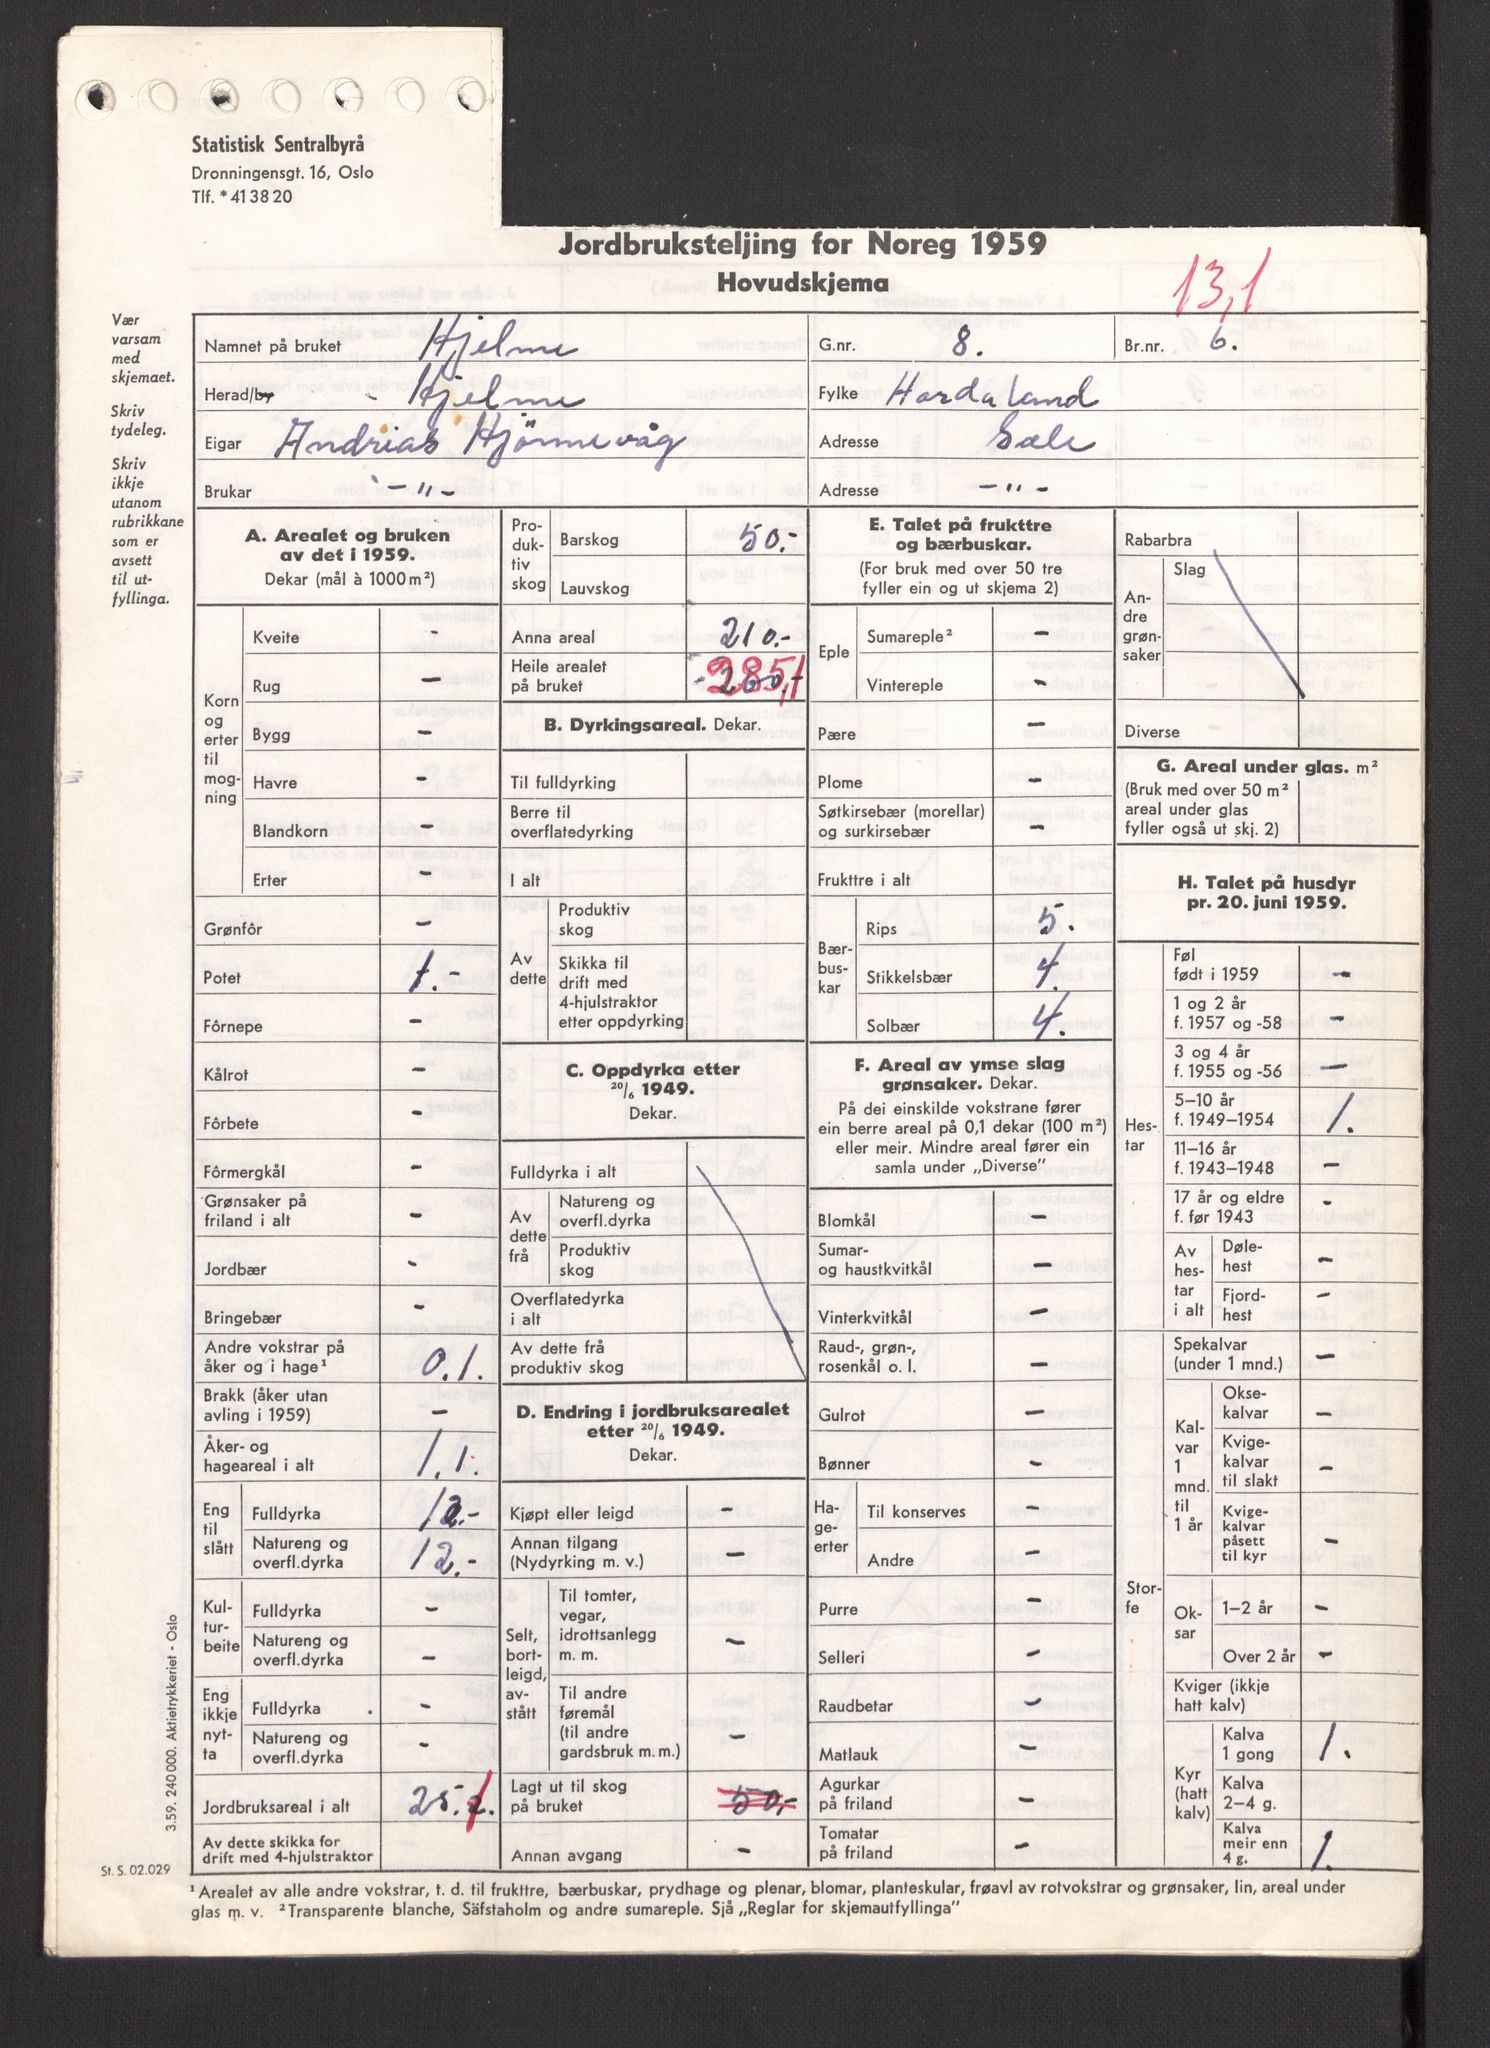 Statistisk Sentralbyrå
Dronningensgt. 16, Oslo
Tlf. * 41 38 20
Jordbruksteljing for Noreg 1959
Hovudskjema
13,1
Vær
varsam
med
skjemaet.
Skriv
tydeleg.
Skriv
ikkje
utanom
rubrikkane
som er
avsett
til ut-
fyllinga.
Namnet på bruket Hjelme G.nr. 8. Br.nr. 6.
Herad/by Hjelme Fylke Hordaland
Eigar Andrias Hjönnevåg Adresse Sæle
Brukar -"- Adresse -"-
A. Arealet og bruken
av det i 1959.
Dekar (mål à 1000 m²)
Korn og erter til mog-ning
Kveite -
Rug -
Bygg -
Havre -
Blandkorn -
Erter -
Grønfôr -
Potet 1.-
Fôrnepe -
Kålrot -
Fôrbete -
Fôrmergkål -
Grønsaker på
friland i alt -
Jordbær -
Bringebær -
Andre vokstrar på
åker og i hage¹ 0.1.
Brakk (åker utan
avling i 1959) -
Åker- og
hageareal i alt 1.1.
Eng til slått
Fulldyrka 12.-
Natureng og
overfl.dyrka 12.-
Kul-tur-beite
Fulldyrka -
Natureng og
overfl.dyrka -
Eng ikkje nyt-ta
Fulldyrka -
Natureng og
overfl.dyrka -
Jordbruksareal i alt 25.1
Av dette skikka for
drift med 4-hjulstraktor
Pro-duk-tiv skog
Barskog 50.-
Lauvskog
Anna areal 210.-
Heile arealet
på bruket 285,1
B. Dyrkingsareal. Dekar.
Til fulldyrking
Berre til
overflatedyrking
I alt
Av dette
Produktiv
skog
Skikka til
drift med
4-hjulstraktor
etter oppdyrking
C. Oppdyrka etter
20/6 1949.
Dekar.
Fulldyrka i alt
Av dette frå
Natureng og
overfl.dyrka
Produktiv
skog
Overflatedyrka
i alt
Av dette frå
produktiv skog
D. Endring i jordbruksarealet
etter 20/6 1949.
Dekar.
Kjøpt eller leigd -
Annan tilgang
(Nydyrking m. v.) -
Selt, bort-leigd, av-stått
Til tomter,
vegar,
idrottsanlegg
m. m. -
Til andre
føremål
(til andre
gardsbruk m. m.) -
Lagt ut til skog
på bruket 50,-
Annan avgang -
E. Talet på frukttre
og bærbuskar.
(For bruk med over 50 tre
fyller ein og ut skjema 2)
Eple
Sumareple² -
Vintereple -
Pære -
Plome -
Søtkirsebær (morellar)
og surkirsebær -
Frukttre i alt
Bær-bus-kar
Rips 5.
Stikkelsbær 4.
Solbær 4.
F. Areal av ymse slag
grønsaker. Dekar.
På dei einskilde vokstrane fører
ein berre areal på 0,1 dekar (100 m²)
eller meir. Mindre areal fører ein
samla under „Diverse”
Blomkål -
Sumar-
og haustkvitkål -
Vinterkvitkål -
Raud-, grøn-,
rosenkål o. l. -
Gulrot -
Bønner -
Ha-ge-erter
Til konserves -
Andre -
Purre -
Selleri -
Raudbetar -
Matlauk -
Agurkar
på friland -
Tomatar
på friland -
Rabarbra
An-dre grøn-saker
Slag
Diverse
G. Areal under glas. m²
(Bruk med over 50 m²
areal under glas
fyller også ut skj. 2)
H. Talet på husdyr
pr. 20. juni 1959.
Hes-tar
Føl
født i 1959 -
1 og 2 år
f. 1957 og -58 -
3 og 4 år
f. 1955 og -56 -
5–10 år
f. 1949–1954 1.
11–16 år
f. 1943–1948 -
17 år og eldre
f. før 1943 -
Av hes-tar i alt
Døle-
hest -
Fjord-
hest -
Stor-fe
Spekalvar
(under 1 mnd.) -
Kal-var 1 mnd. til 1 år
Okse-
kalvar -
Kvige-
kalvar
til slakt -
Kvige-
kalvar
påsett
til kyr -
Ok-sar
1–2 år -
Over 2 år -
Kviger (ikkje
hatt kalv)
Kyr (hatt kalv)
Kalva
1 gong 1.
Kalva
2–4 g.
Kalva
meir enn
4 g. 1.
3.59. 240 000. Aktietrykkeriet - Oslo
St. S. 02.029
¹ Arealet av alle andre vokstrar, t. d. til frukttre, bærbuskar, prydhage og plenar, blomar, planteskular, frøavl av rotvokstrar og grønsaker, lin, areal under
glas m. v. ² Transparente blanche, Säfstaholm og andre sumareple. Sjå „Reglar for skjemautfyllinga”